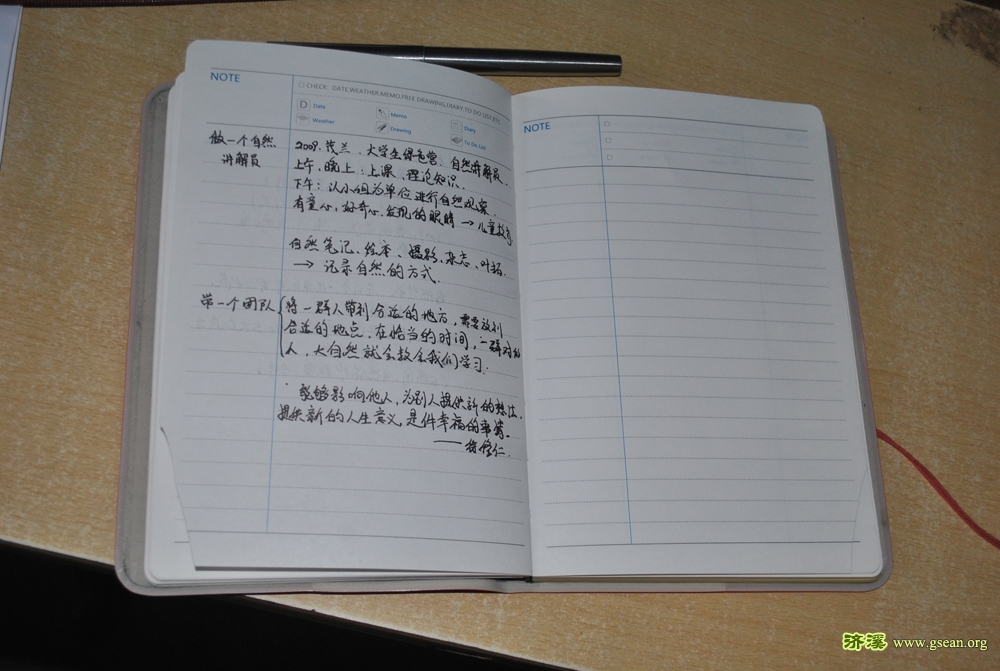 NOTE
CHECK: DATE,WEATHER,MEMO,FREE DRAWING,DIARY,TO DO LIST,ETC
D Date
Memo
Diary
Weather
Drawing
To Do List
做一个自然
讲解员
2009. 茂兰. 大学生绿色营. 自然讲解员.
上午、晚上:上课、理论知识.
下午:以小组为单位进行自然观察.
有童心,好奇心.发现的眼睛 → 儿童教育
自然笔记、绘本、摄影、杂志、叶拓.
→ 记录自然的方式.
带一个团队
将一群人带到合适的地方,需要放到
合适的地点.在恰当的时间,一群对的
人,大自然就会教会我们学习.
能够影响他人,为别人提供新的想法,
提供新的人生意义,是件幸福的事情.
——徐仁.
NOTE
济溪 www.gsean.org